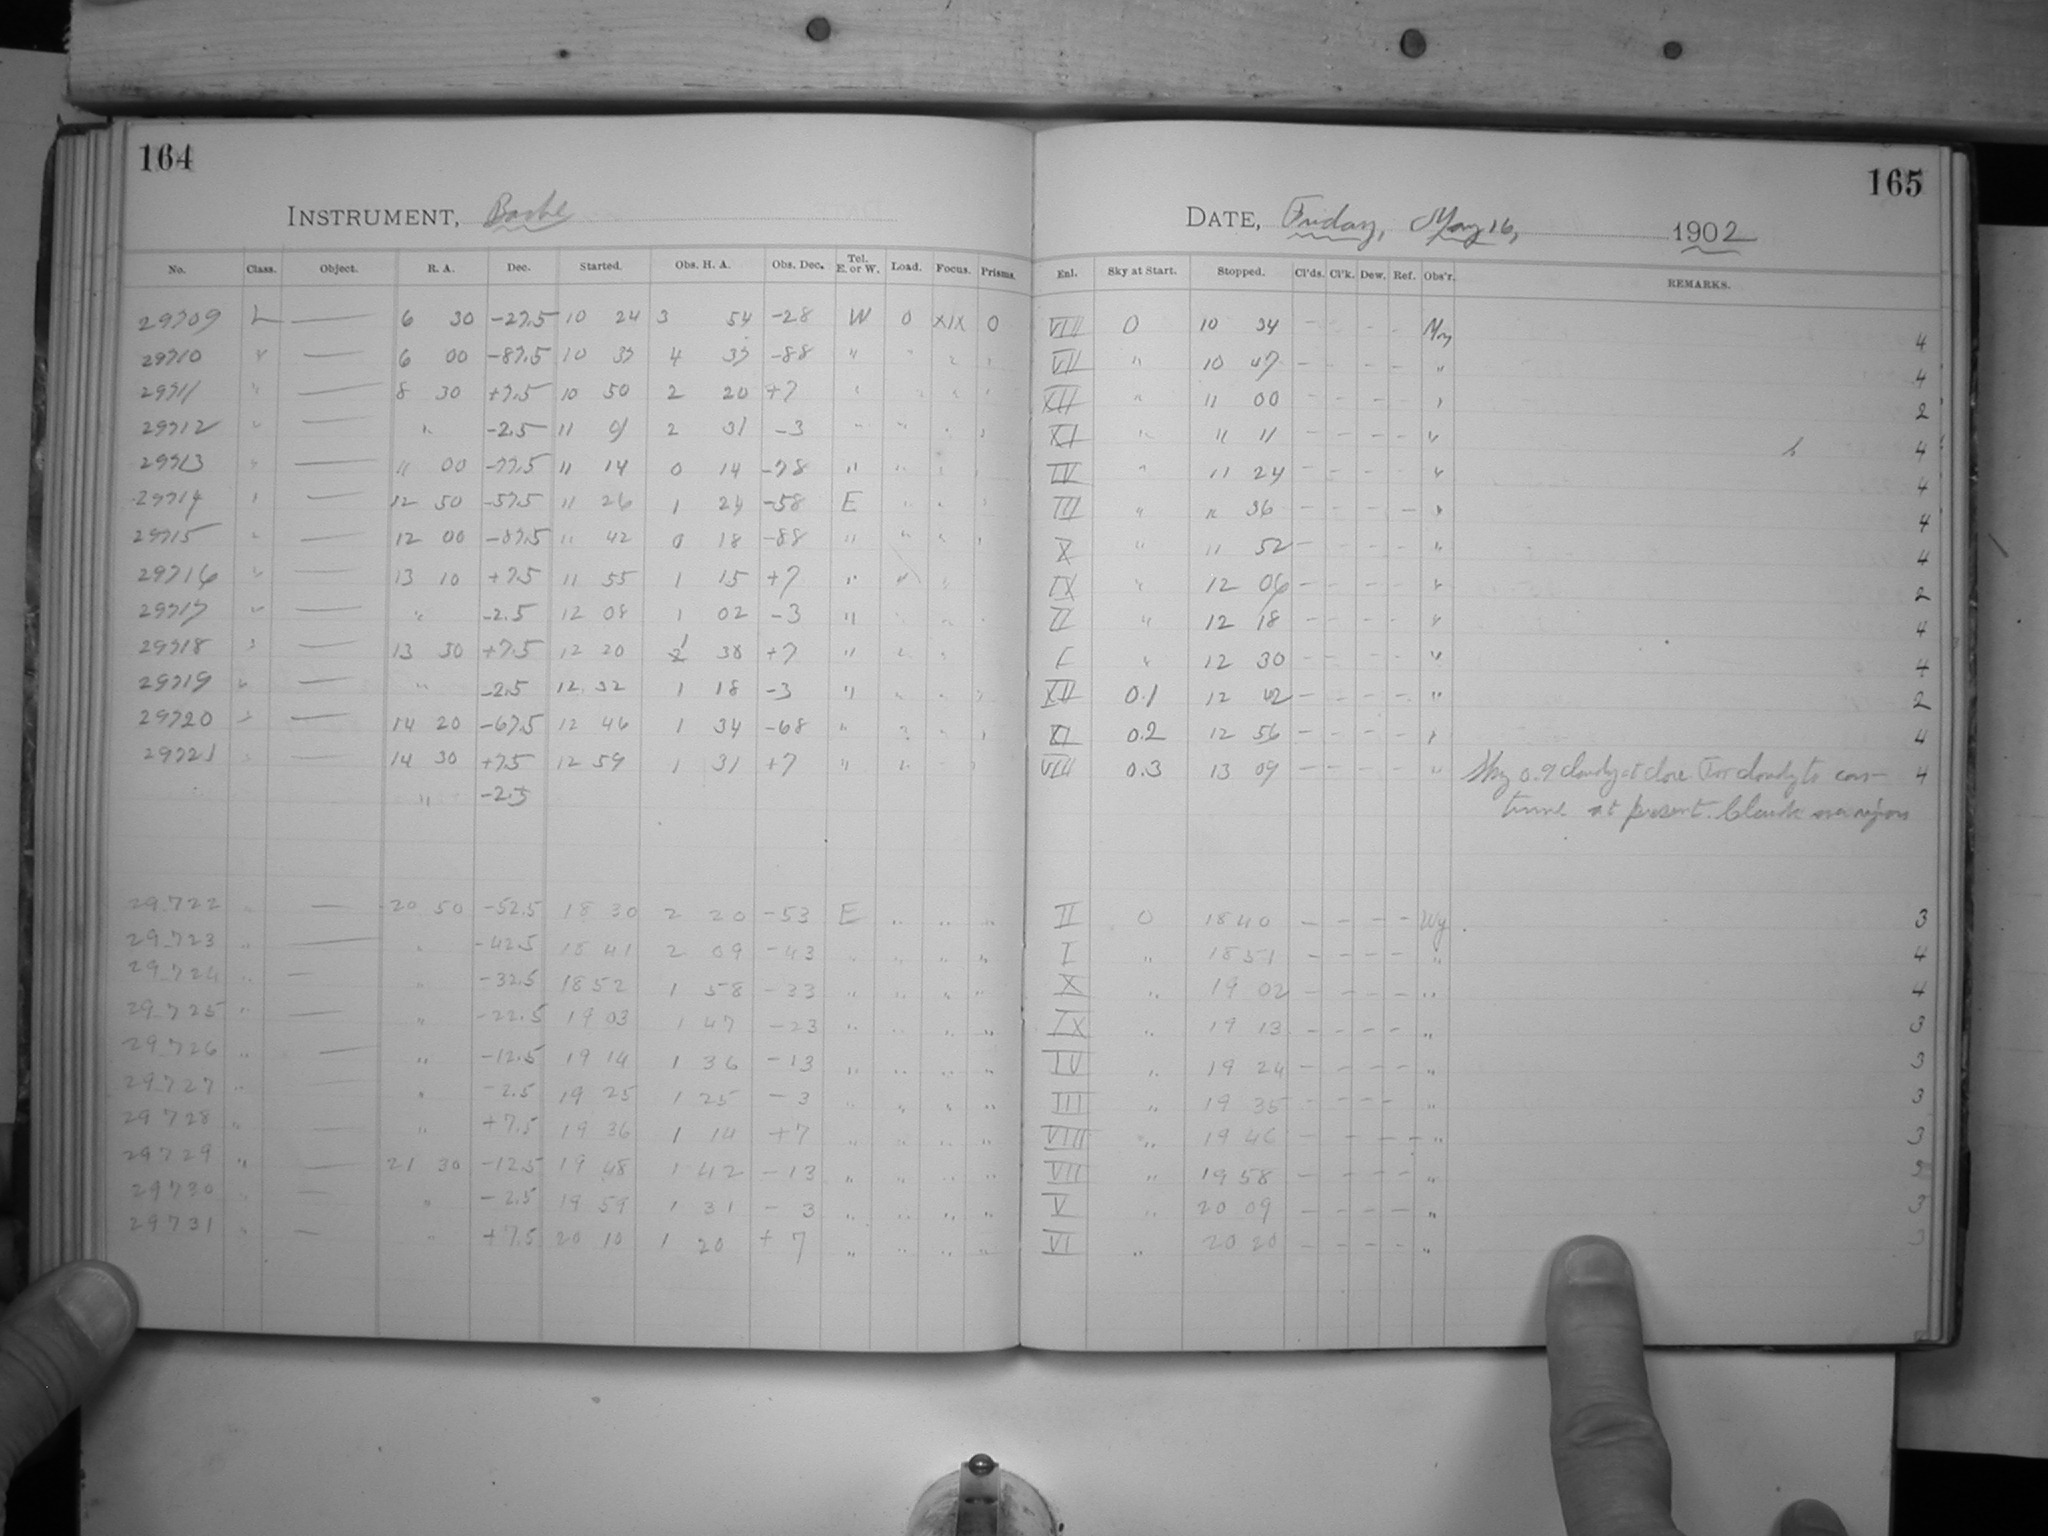 164
INSTRUMENT, Bache
No. Class. Object. R. A. Dec. Started. Obs. H. A. Obs. Dec. Tel. E. or W. Load. Focus. Prisms.
29709 L — 6 30 -27.5 10 24 3 54 -28 W 0 XIX 0
29710 " — 6 00 -87.5 10 37 4 37 -88 " " " "
29711 " — 8 30 +7.5 10 50 2 20 +7 " " " "
29712 " — " -2.5 11 01 2 31 -3 " " " "
29713 " — " 00 -77.5 11 14 0 14 -78 " " " "
29714 " — 12 50 -57.5 11 26 1 24 -58 E " " "
29715 " — 12 00 -87.5 11 42 0 18 -88 " " " "
29716 " — 13 10 +7.5 11 55 1 15 +7 " " "
29717 " — " -2.5 12 08 1 02 -3 " " " "
29718 " — 13 30 +7.5 12 20 1 30 +7 " " "
29719 " — " -2.5 12 32 1 18 -3 " " " "
29720 " — 14 20 -67.5 12 46 1 34 -68 " " " "
29721 " — 14 30 +7.5 12 59 1 31 +7 " " " "
" -2.5
29722 " — 20 50 -52.5 18 30 2 20 -53 E " " "
29723 " — " -42.5 18 41 2 09 -43 " " " "
29724 " — " -32.5 18 52 1 58 -33 " " " "
29725 " — " -22.5 19 03 1 47 -23 " " " "
29726 " — " -12.5 19 14 1 36 -13 " " " "
29727 " — " -2.5 19 25 1 25 -3 " " " "
29728 " — " +7.5 19 36 1 14 +7 " " " "
29729 " — 21 30 -12.5 19 48 1 42 -13 " " " "
29730 " — " -2.5 19 59 1 31 -3 " " " "
29731 " — " +7.5 20 10 1 20 +7 " " " "
165
DATE, Friday, May 16, 1902
Enl. Sky at Start. Stopped. Cl'ds. Cl'k. Dew. Ref. Obs'r. REMARKS.
VIII 0 10 34 - - - - 4
VII " 10 47 - - - - " 4
XII " 11 00 - - - - " 2
XI " 11 11 - - - - " 4
IV " 11 24 - - - - " 4
III " " 36 - - - - " 4
X " 11 52 - - - - " 4
IX " 12 06 - - - - " 2
II " 12 18 - - - - " 4
I " 12 30 - - - - " 4
XII 0.1 12 42 - - - - " 2
XI 0.2 12 56 - - - - " 4
VIII 0.3 13 09 - - - - " Sky 0.9 cloudy at close Too cloudy to con- 4
tinue at present. Clouds
II 0 18 40 - - - - Wy. 3
I " 18 51 - - - - " 4
X " 19 02 - - - - " 4
IX " 19 13 - - - - " 3
IV " 19 24 - - - - " 3
III " 19 35 - - - - " 3
VIII " 19 46 - - - - " 3
VII " 19 58 - - - - " 3
V " 20 09 - - - - " 3
VI " 20 20 - - - - " 3